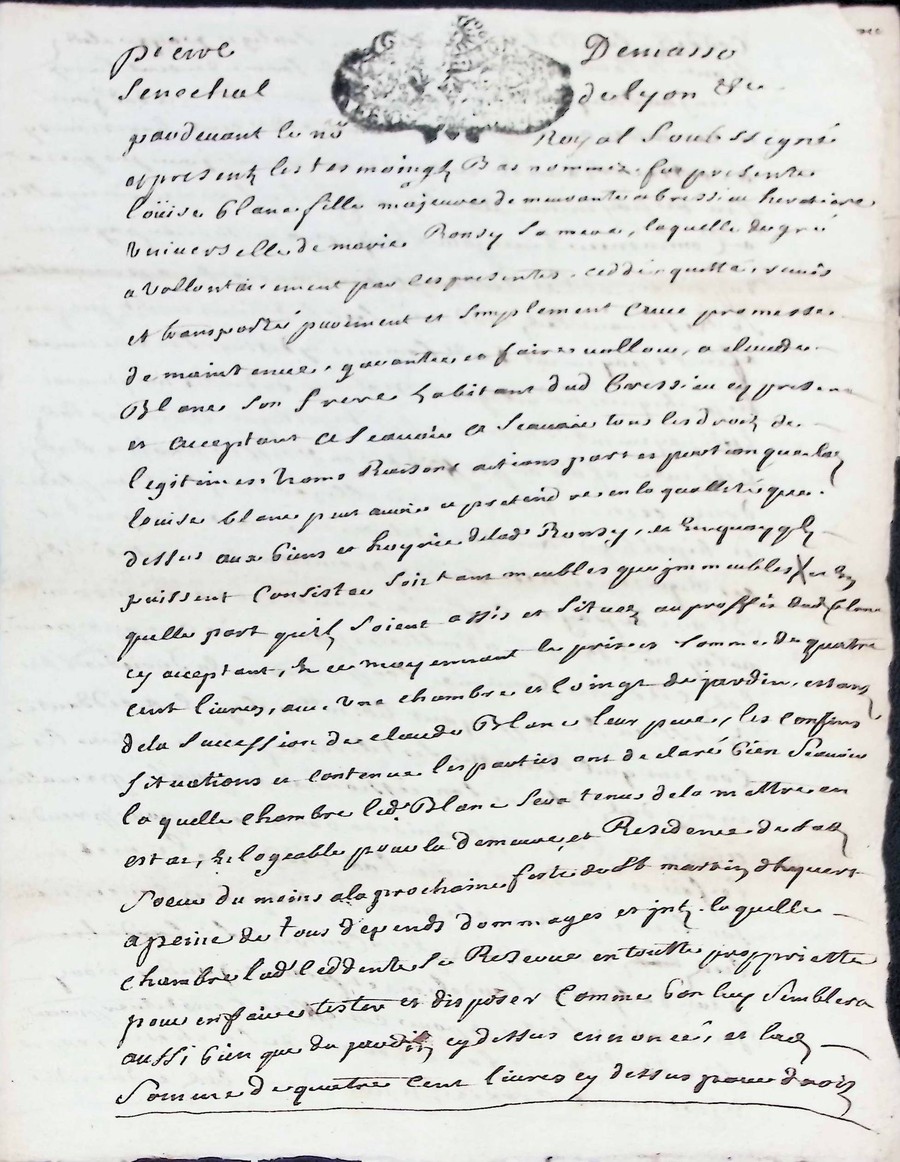 pierre Demasso
Senechal de lyon &c
pardevant le no Royal Soubssigné
et presents les tesmoingts Bas nommez fut presente
loüise blanc fille majeure demeurante a bressieu heretiere
Universelle de marie Ronsy sa mere, laquelle de gré
a vollontairement par ces presentes ceddé quitté remis
et transporté purement et simplement avec promesse
de maintenue garantie et faire valloir, a claude
Blanc son frere habitant dud bressieu cy present
et acceptant Ascavoir tous les droits de
legitimes noms Raisons actions part et portion que lad
louise blanc peut avoir et pretendre en la quallité que
dessus aux biens et hoyrie delad Ronsy, et En quoy qlz
puissent Consister soit tant meubles que jmmeubles X et En
quelle part quilz soient assis et situez au proffit dud blanc
cy acceptant, Et ce moyennant le prix et somme de quatre
cent livres, avec Une chambre et loingt de jardin, estans
dela succession de claude Blanc leur pere, les confins
situations et contenue les parties ont declaré bien scavoir
laquelle chambre led. Blanc sera tenu dela mettre en
estat, Et logeable pour la demeure et Residence de sad
soeur du moins ala prochaine feste de St martin dhyvert
apeine de tous depends dommages et jntz. laquelle
chambre lad ceddente se Reserve en toutte proppriette
pour en faire tester et disposer Comme bon luy semblera
aussi bien que du jardin cy dessus ennoncé, et lad
Somme de quatre cent livres cy dessus pour droits